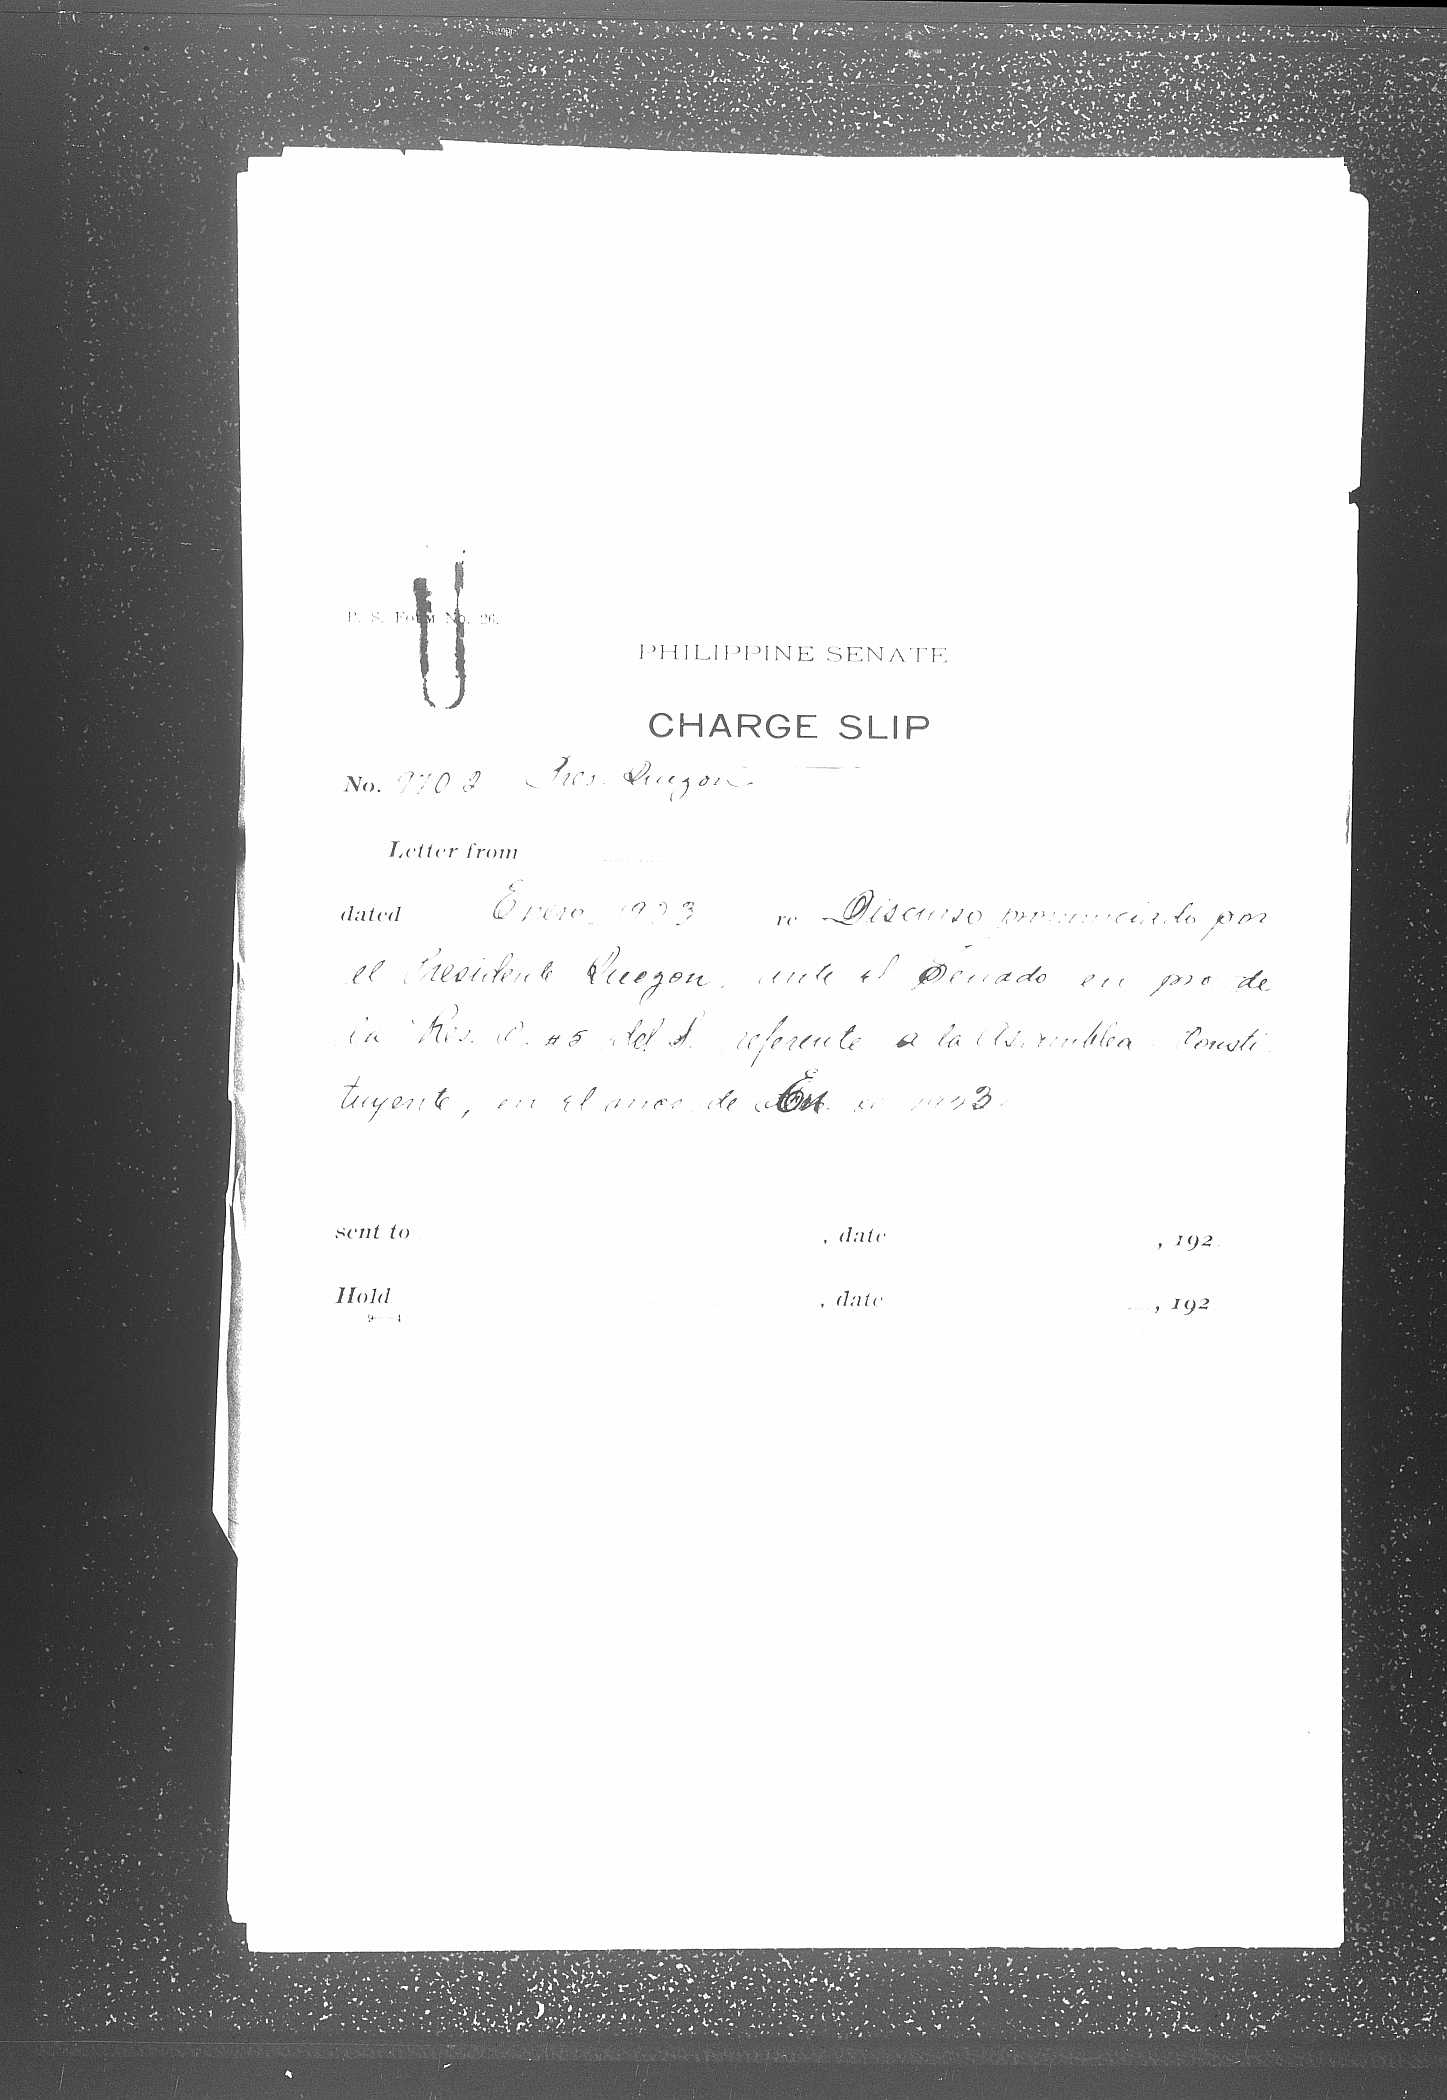 P. S. Form No. 26.
PHILIPPINE SENATE
CHARGE SLIP
No. 9702 Pres. Quezon
Letter from
dated Enero, 1923 re Discurso pronunciado por
el Presidente Quezon, ante el Senado en pro de
la Res. C. #5 del S. referente a la Asamblea Consti
tuyente, en el de En. 1923.
sent to , date , 192
Hold , date , 192